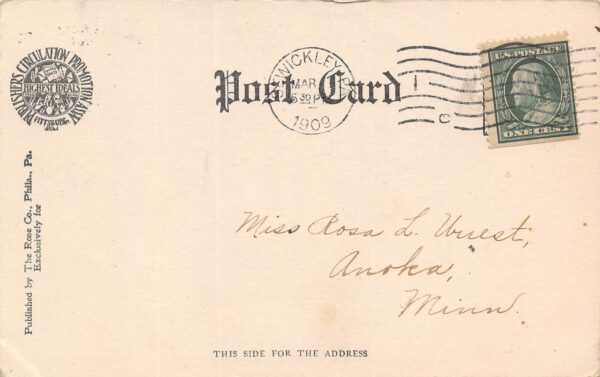 PUBLISHERS CIRCULATION PROMOTION ASS'N
HIGHEST IDEALS
PITTSBURG, PA.
Post Card
SEWICKLEY, PA.
MAR
30 P
1909
U.S. POSTAGE
ONE CENT
Published by The Rose Co., Phila., Pa.
Exclusively for
Miss Rosa L. Wuest,
Anoka,
Minn.
THIS SIDE FOR THE ADDRESS